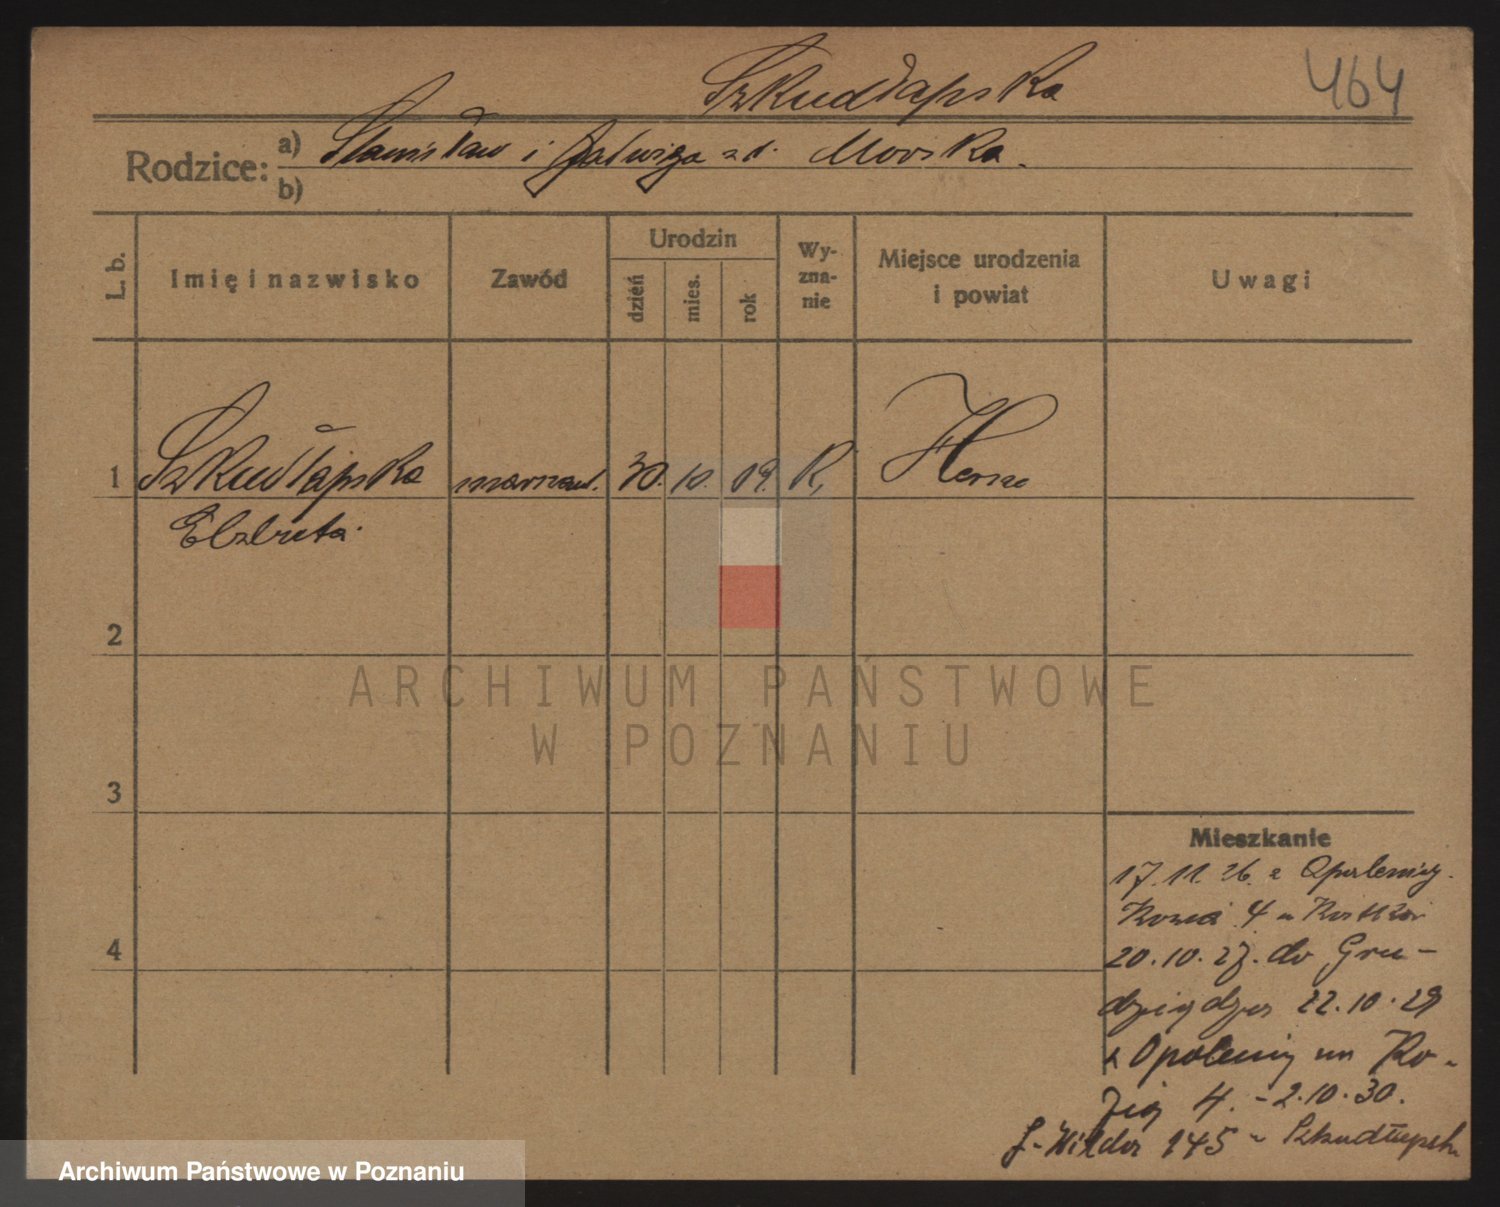 Szkudlapska
464
Rodzice: a) Stanisław i Jadwiga z d. Morska.
b)
L. b.
Imię i nazwisko
Zawód
Urodzin
dzień
mies.
rok
Wy-
zna-
nie
Miejsce urodzenia
i powiat
Uwagi
1 Szkudłapska 30. 10. 09. R,
Elzbieta
2
3
4
Mieszkanie
17. 11. 26. z Opalenicy
Kozia 4
20. 10. 27. do Gru-
dziądza 22. 10. 29
z Opalenicy na Ko-
zią 4. - 2. 10. 30.
G. Wilda 145
ARCHIWUM PAŃSTWOWE
W POZNANIU
Archiwum Państwowe w Poznaniu